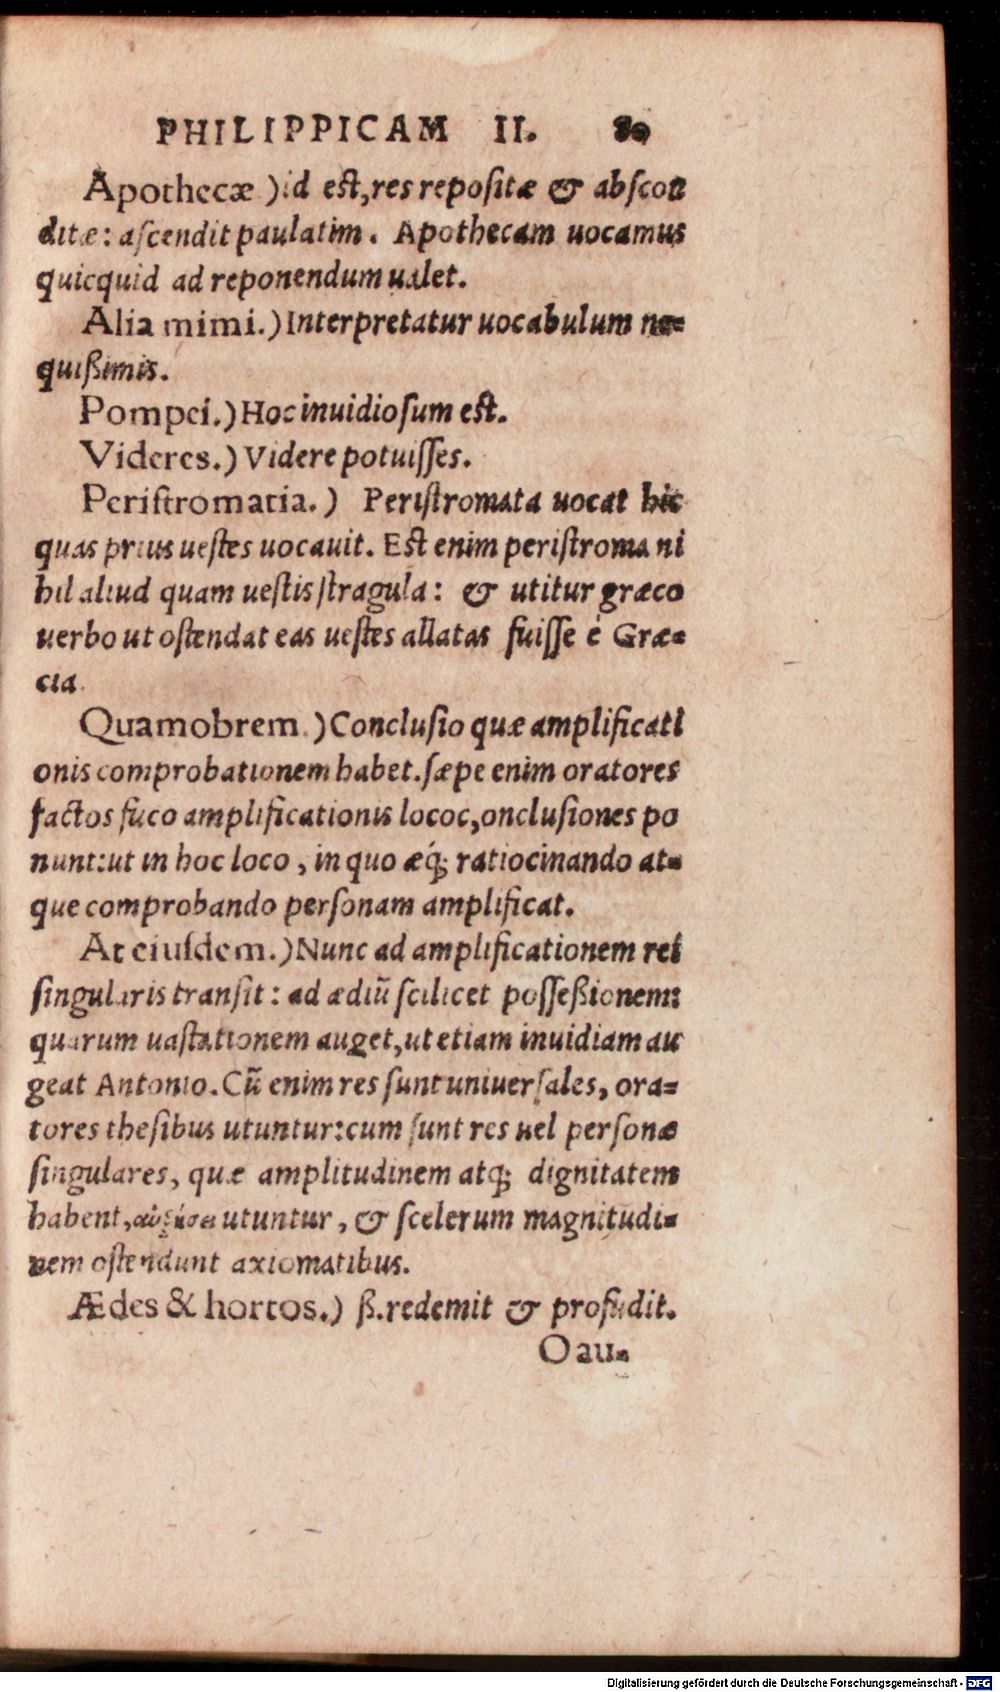 PHILIPPICAM II. 80
Apothecæ ) id est, res repositæ & abscon
ditæ: ascendit paulatim. Apothecam uocamus
quicquid ad reponendum ualet.
Alia mimi.) Interpretatur uocabulum ne-
quißimis.
Pompei.) Hoc inuidiosum est.
Videres.) Videre potuisses.
Peristromatia.) Peristromata uocat hic
quas prius uestes uocauit. Est enim peristroma ni
hil aliud quam uestis stragula: & utitur græco
uerbo ut ostendat eas uestes allatas fuisse è Græ-
cia.
Quamobrem.) Conclusio quæ amplificati
onis comprobationem habet. sæpe enim oratores
factos fuco amplificationis lococ,onclusiones po
nunt:ut in hoc loco, in quo æq́; ratiocinando at-
que comprobando personam amplificat.
At eiusdem.) Nunc ad amplificationem rei
singularis transit: ad ædiū scilicet posseßionem:
quarum uastationem auget, ut etiam inuidiam au
geat Antonio. Cū enim res sunt uniuersales, ora-
tores thesibus utuntur:cum sunt res uel personæ
singulares, quæ amplitudinem atq; dignitatem
habent, αὐξήσει utuntur, & scelerum magnitudi-
nem ostendunt axiomatibus.
Ædes & hortos.) ß. redemit & profudit.
O au-
Digitalisierung gefördert durch die Deutsche Forschungsgemeinschaft - DFG